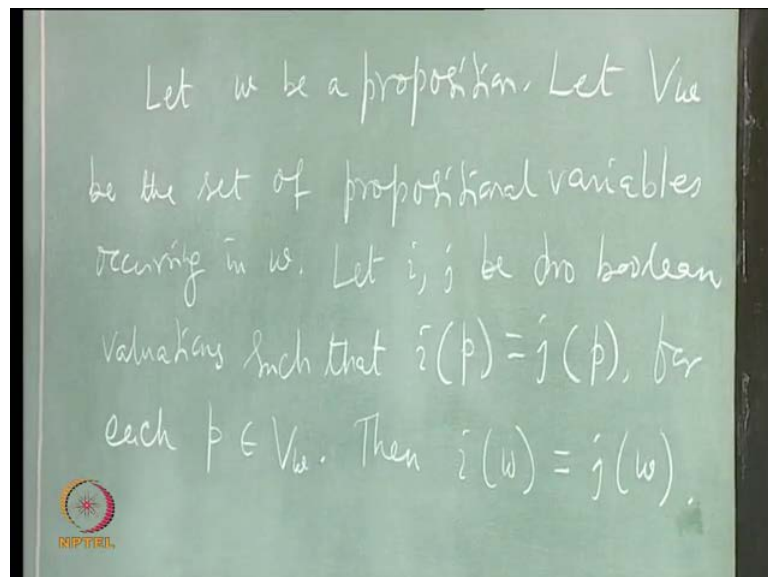 Let w be a proposition. Let V_w
be the set of propositional variables
occurring in w. Let i, j be two boolean
valuations such that i(p) = j(p), for
each p ∈ V_w. Then i(w) = j(w).
NPTEL